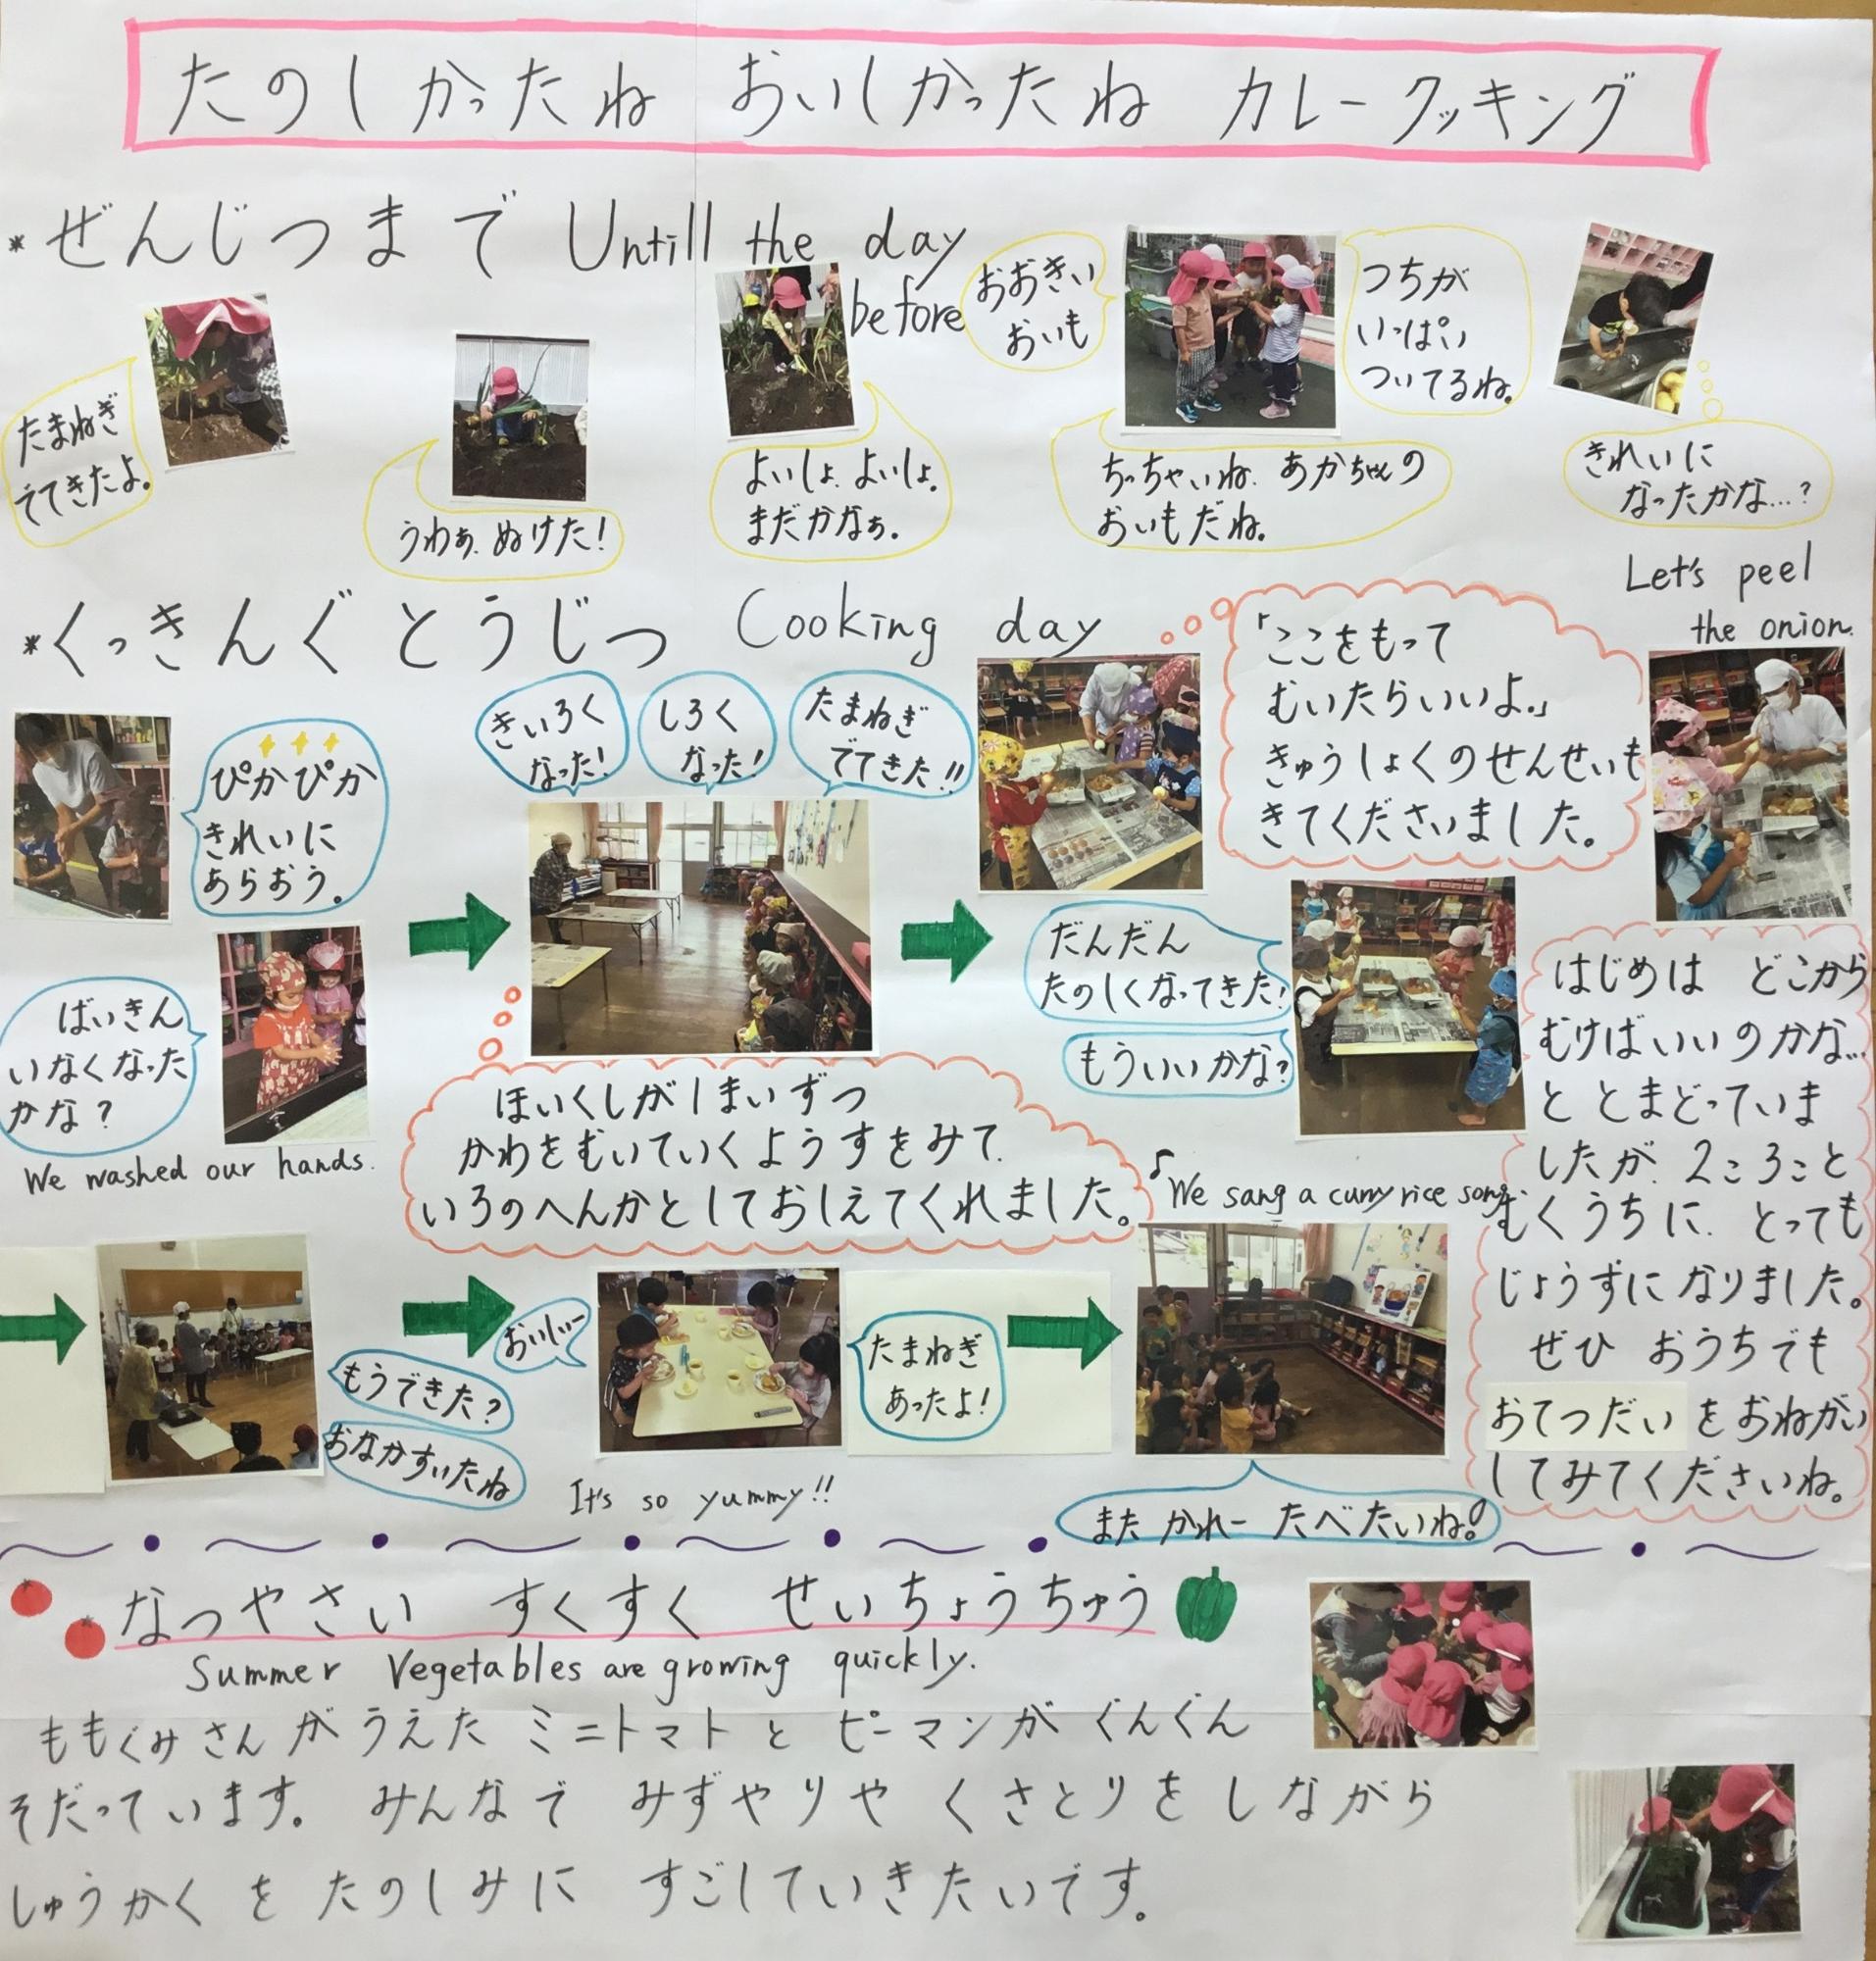 たのしかったね おいしかったね カレークッキング
*ぜんじつまで Untill the day
before
たまねぎ
でてきたよ。
うわぁ、ぬけた!
よいしょ、よいしょ、
まだかなぁ。
おおきい
おいも
つちが
いっぱい
ついてるね。
ちっちゃいね、あかちゃんの
おいもだね。
きれいに
なったかな…?
*くっきんぐとうじつ Cooking day
Let's peel
the onion.
ぴかぴか
きれいに
あらおう。
ばいきん
いなくなった
かな?
We washed our hands.
きいろく
なった!
しろく
なった!
たまねぎ
でてきた!!
ほいくしが1まいずつ
かわをむいていくようすをみて、
いろのへんかとしておしえてくれました。
「ここをもって
むいたらいいよ。」
きゅうしょくのせんせいも
きてくださいました。
だんだん
たのしくなってきた!
もういいかな?
はじめは どこから
むけばいいのかな…
と とまどっていま
したが、2こ3こと
むくうちに、とっても
じょうずになりました。
ぜひ おうちでも
おてつだいをおねがい
してみてくださいね。
もうできた?
おなかすいたね
おいしいー
It's so yummy!!
たまねぎ
あったよ!
♪We sang a curry rice song
また かれー たべたいね!
なつやさい すくすく せいちょうちゅう
Summer Vegetables are growing quickly.
ももぐみさんがうえた ミニトマトと ピーマンが ぐんぐん
そだっています。 みんなで みずやりや くさとりを しながら
しゅうかくを たのしみに すごしていきたいです。